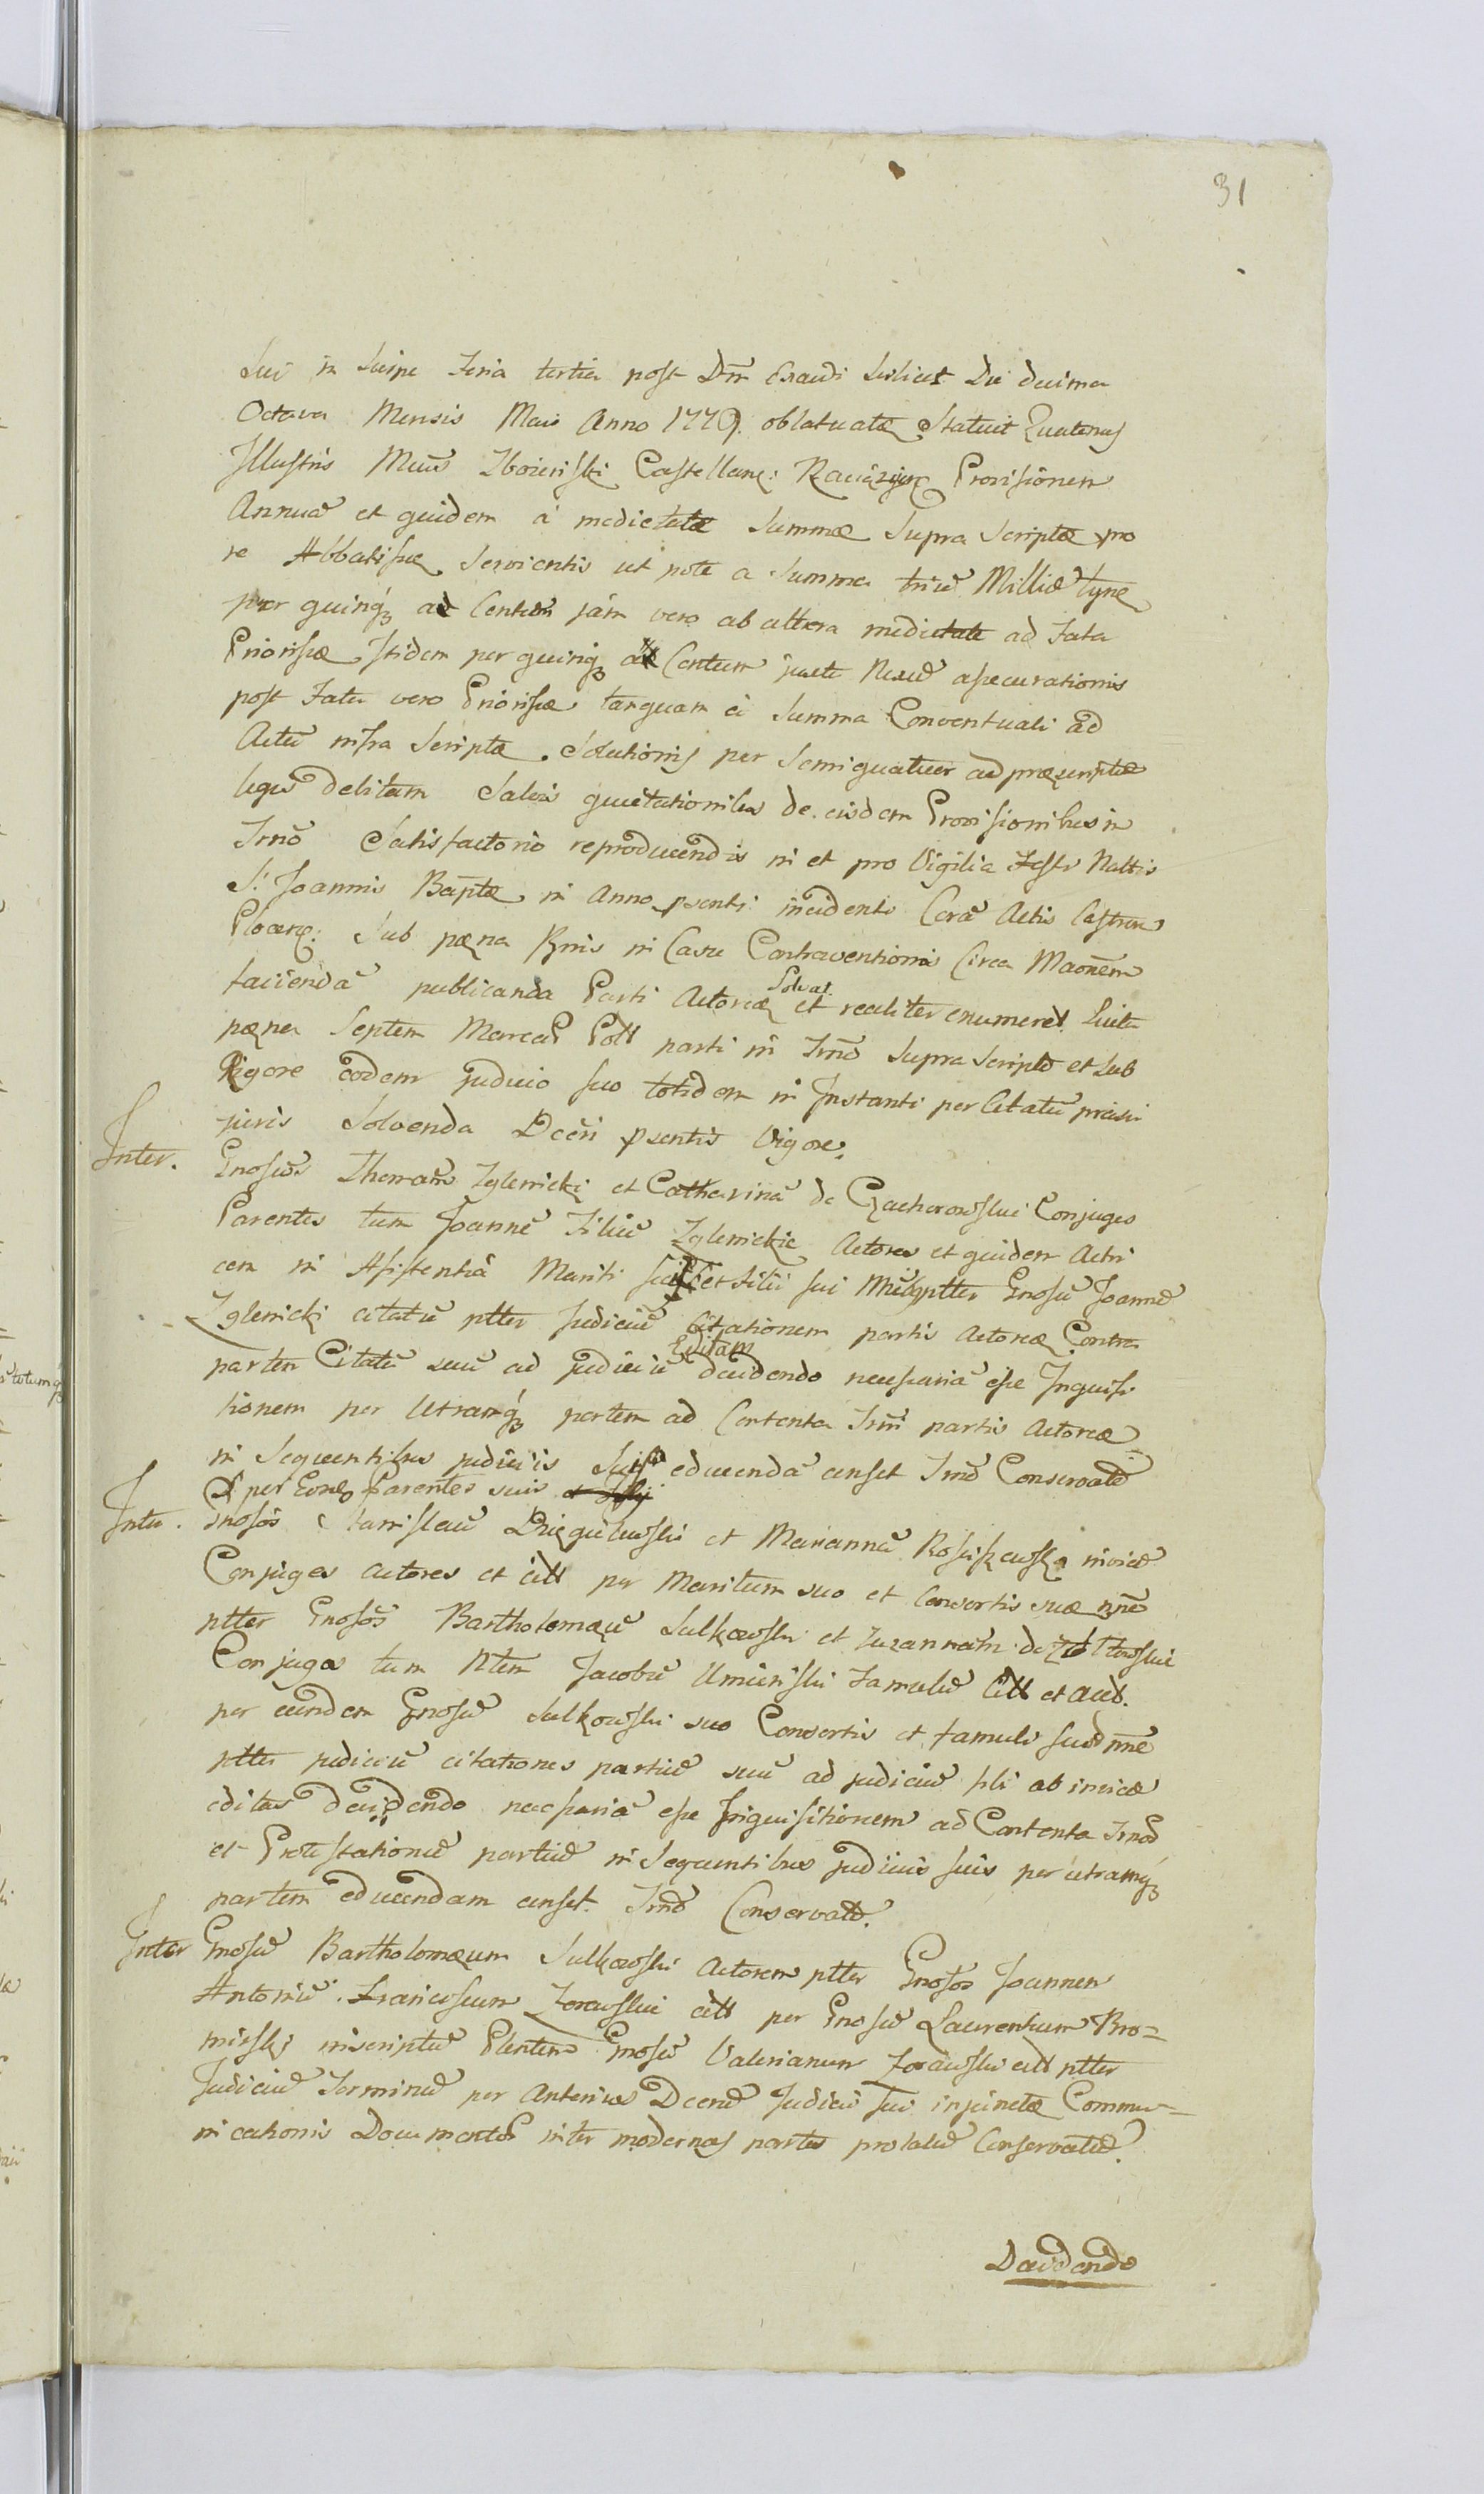 31
Sui in Sierpc Feria tertia post Dnm Exaudi scilicet Die decima
Octava Mensis Maii Anno 1779. oblatuatæ Statuit Quatenus
Illustris Zboinski Castellanę: Raciązięn: Provisionem
Annuã et quidem à medietate Summæ Supra Scriptæ pro
re Abbatissæ Servientis ut pote a Summa triũ Milliũ Tynf
per quinq́ꝫ ad Centum jám vero ab altera medietate ad Fata
Priorissæ itidem per quinq́ꝫ Centum juxta Nexũ assecurationis
post Fata vero Priorissæ tanquam à Summa Conventuali ad
Actũ infra Scriptæ Solutionis per Semiquatuor ad præscriptũ
legũ debitam Salvis quietationibus de eisdem Provisionibus in
Trnõ Satisfactorio reproducendis in et pro Vigilia Festi Nattis
S. Joannis Baptæ in Anno pꝛsenti incidenti Corã Actis Castren
Plocenę: Sub pæna Bnis in Casu Contraventionis Circa Maonem
Solvat
faciendã publicanda Parti Actoreæ et realiter enumeret Luita
pæna Septem Marcar Poll parti in Trnõ Supra Scripto et sub
Rigore eodem judicio suo totidem in Instanti per Citatũ
juris Solvenda Dceri pꝛsentis Vigore.
Inter. Gnosũ Thomam Zglenicki et Catharinã de Czachorowskie Conjuges
Parentes tum Joannẽ Filiũ Zglenickie Actores et quidem Actri
cem in Assistentiã Mariti sui et Filii sui ptter Gnosũ Joannẽ
Zglenicki citatũ ptter Judiciũ Citationem partis Actoreæ Contra
Editam
partem Citatũ suũ ad judiciũ decidendo necessariã esse Inquisi
tionem per Utramq́ꝫ partem ad Contenta Trni partis Actoreæ
in Sequentibus judiciis Suis educendã censet Trnõ Conservato
per Parentes suis
Inter. Gnosos Stanislaũ Dziegielewski et Mariannã Rosciszewska invicẽ
Conjuges Actores et citt per Maritum suo et Consortis suæ nne
ptter Gnosos Bartholomæũ Sulkowski et Zuzannam de Zoltowskie
Conjuges tum Ntem Jacobũ Umienski Famulũ Citt et Act.
per eundem Gnosũ Sulkowski suo Consortis et famuli sui nne
ptter judiciũ citationes partiũ suũ ad judiciũ sbi ab invicẽ
editas decidendo necessariã esse Inquisitionem ad Contenta Trnor
et Protestationũ partiũ in Sequentibus judiciis suis per utramq́ꝫ
partem educendam censet. Trnõ Conservato.
Inter Gnosũ Bartholomæum Sulkowski Actorem ptter Gnosos Joannem
Antoniũ Franciscum Zorawskie citt per Gnosũ Laurentium Bro=
mirski inscriptũ Plentem Gnosũ Valerianum Zorawski citt ptter
Judiciũ Terminũ per Anterius Dcerũ Judicii sui injunctæ Commu=
nicationis Documentor inter modernas partes prolatũ Conservatũ.
Decidendo